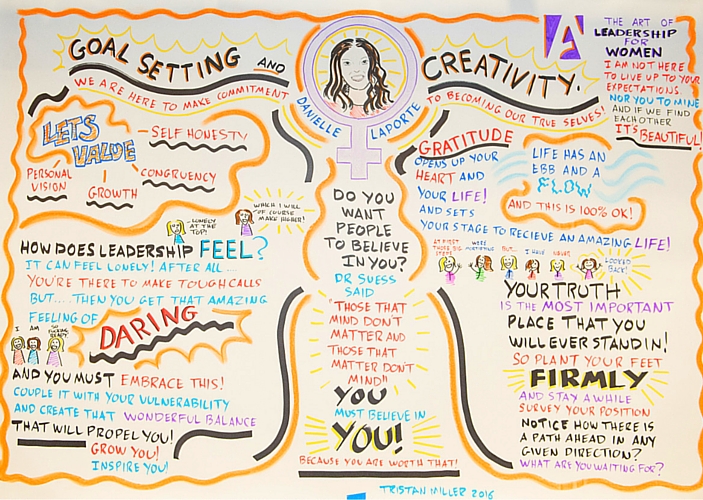 GOAL SETTING AND
CREATIVITY.
WE ARE HERE TO MAKE COMMITMENT
TO BECOMING OUR TRUE SELVES!
DANIELLE LAPORTE
A
THE ART OF
LEADERSHIP
FOR
WOMEN
I AM NOT HERE
TO LIVE UP TO YOUR
EXPECTATIONS.
NOR YOU TO MINE
AND IF WE FIND
EACHOTHER
IT'S BEAUTIFUL!
LETS
VALUE
SELF HONESTY
PERSONAL
VISION
GROWTH
CONGRUENCY
LONELY
AT THE
TOP!
WHICH I WILL
OF COURSE
MAKE HIGHER!
HOW DOES LEADERSHIP FEEL?
IT CAN FEEL LONELY! AFTER ALL....
YOU'RE THERE TO MAKE TOUGH CALLS
BUT....THEN YOU GET THAT AMAZING
FEELING OF
DARING
I AM SO
FUCKING
READY
AND YOU MUST EMBRACE THIS!
COUPLE IT WITH YOUR VULNERABILITY
AND CREATE THAT WONDERFUL BALANCE
THAT WILL PROPEL YOU!
GROW YOU!
INSPIRE YOU!
DO YOU
WANT
PEOPLE
TO BELIEVE
IN YOU?
DR SUESS
SAID
"THOSE THAT
MIND DON'T
MATTER AND
THOSE THAT
MATTER DON'T
MIND"
YOU
MUST BELIEVE IN
YOU!
BECAUSE YOU ARE WORTH THAT!
GRATITUDE
OPENS UP YOUR
HEART AND
YOUR LIFE!
AND SETS
YOUR STAGE TO RECIEVE AN AMAZING LIFE!
LIFE HAS AN
EBB AND A
FLOW
AND THIS IS 100% OK!
AT FIRST
THOSE BIG
STEPS
WERE
MORTIFYING
BUT...
I HAVE
NEVER
LOOKED
BACK!
YOUR TRUTH
IS THE MOST IMPORTANT
PLACE THAT YOU
WILL EVER STAND IN!
SO PLANT YOUR FEET
FIRMLY
AND STAY A WHILE
SURVEY YOUR POSITION
NOTICE HOW THERE IS
A PATH AHEAD IN ANY
GIVEN DIRECTION?
WHAT ARE YOU WAITING FOR?
TRISTAN MILLER 2016